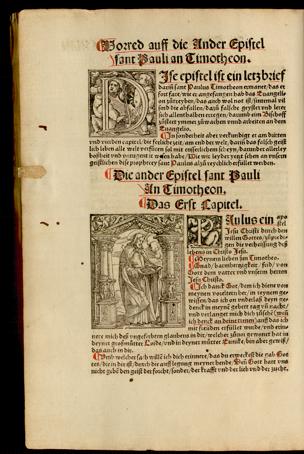 Vorred auff die Ander Epistel
sant Pauli an Timotheon.
Dise epistel ist ein letzbrieff
darin sant Paulus Timotheon ermanet, das er
fort fare, wie er angefangen hab das Euangelio
an zůtreyben, das auch wol not ist, sintemal vil
sind die abfallen, falsche geyster und lerer
sich allenthalben erregen, darumb ein Bischoff
můsset ymmer an dem
Euangelio.
In sonderheit aber verkundiget er am dritten
und vierden capitel, die ferliche zeit, am end der welt, darin das falsch geist
lich leben alle welt verfůren sol mit eusserlichem scheyn, darunder allerley
bossheit und haben, Wie wir leyder yetzt sehen an unsern
geistlichen dise prophecey sant Paulus reychlich erfüllet werden.
Die ander Epistel sant Pauli
An Timotheon.
Das Erst Capitel.
Paulus ein apo
stel Jesu Christi durch den
willen Gottes, zů predi
gen die verheissung des
lebens in Christo Jesu.
Meynem lieben sun Timotheo.
Gnad, barmhertzigkeit, frid, von
Gott dem vatter und unserm herren
Jesu Christo.
Ich danck Got, dem ich diene von
meynen voreltern her, in reynem ge
wissen, das ich on underlaß deyn ge
denck in meynem gebett tag und nacht,
und verlanget mich dich zů sehen, wen
ich denck an deine auff das ich
mit freuden erfüllet wurde, und erin
nere mich deß ungeferbten glauben in dir, welcher zůuor gewonet hat in
deyner großmůtter Loide, und in deyner můtter Eunike, bin aber gewiß,
das auch in dir.
Umb welcher sach will ich dich erinnere, das du erweckest die gab Got
tes, die in dir ist, durch die auff legung meyner hende, Wen Gott hatt uns
nicht geben den geist der forcht, sonder, der krafft und der lieb und der zucht,